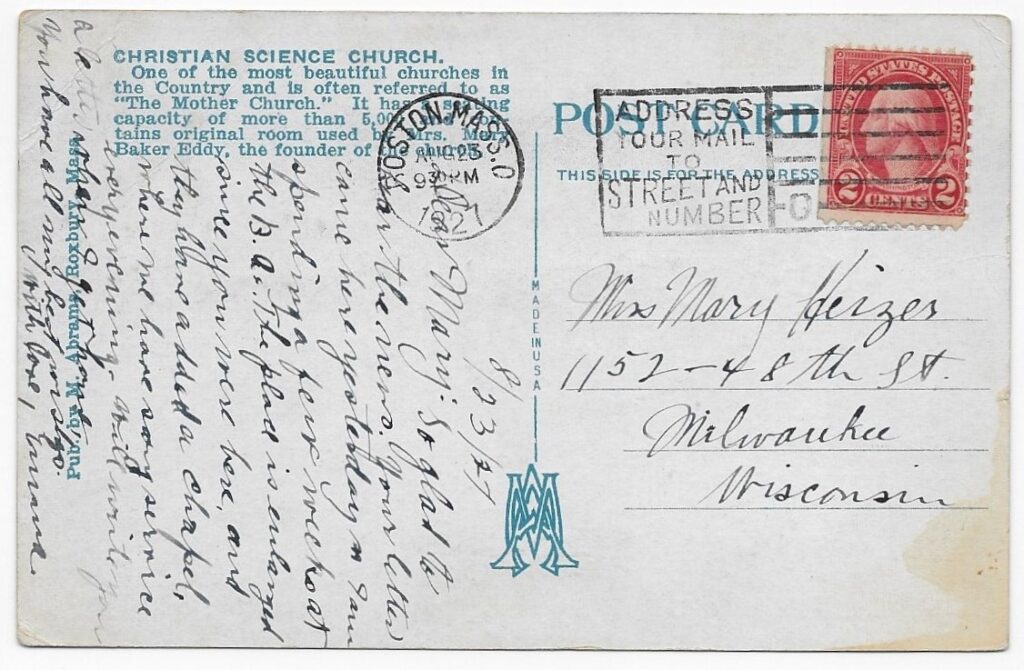 CHRISTIAN SCIENCE CHURCH.
One of the most beautiful churches in
the Country and is often referred to as
"The Mother Church." It has seating
capacity of more than 5,000
tains original room used by Mrs. Mary
Baker Eddy, the founder of the church.
Pub. by M. Abrams, Roxbury, Mass.
POST CARD
THIS SIDE IS FOR THE ADDRESS
MADE IN USA
BOSTON, MASS. O
AUG 23
930 PM
1927
ADDRESS
YOUR MAIL
TO
STREET AND
NUMBER
UNITED STATES POSTAGE
2 CENTS 2
8/23/27
Dear Mary: So glad to
hear the news. Your letter
came here yesterday. I am
spending a few weeks at
the B. A. The place is enlarged
since you were here, and
they have added a chapel,
where we have song service
every evening. Will write you
a letter when I get home,
You have all my best wishes.
With love, Emma.
Mrs Mary Heizer
1152-48th St.
Milwaukee
Wisconsin